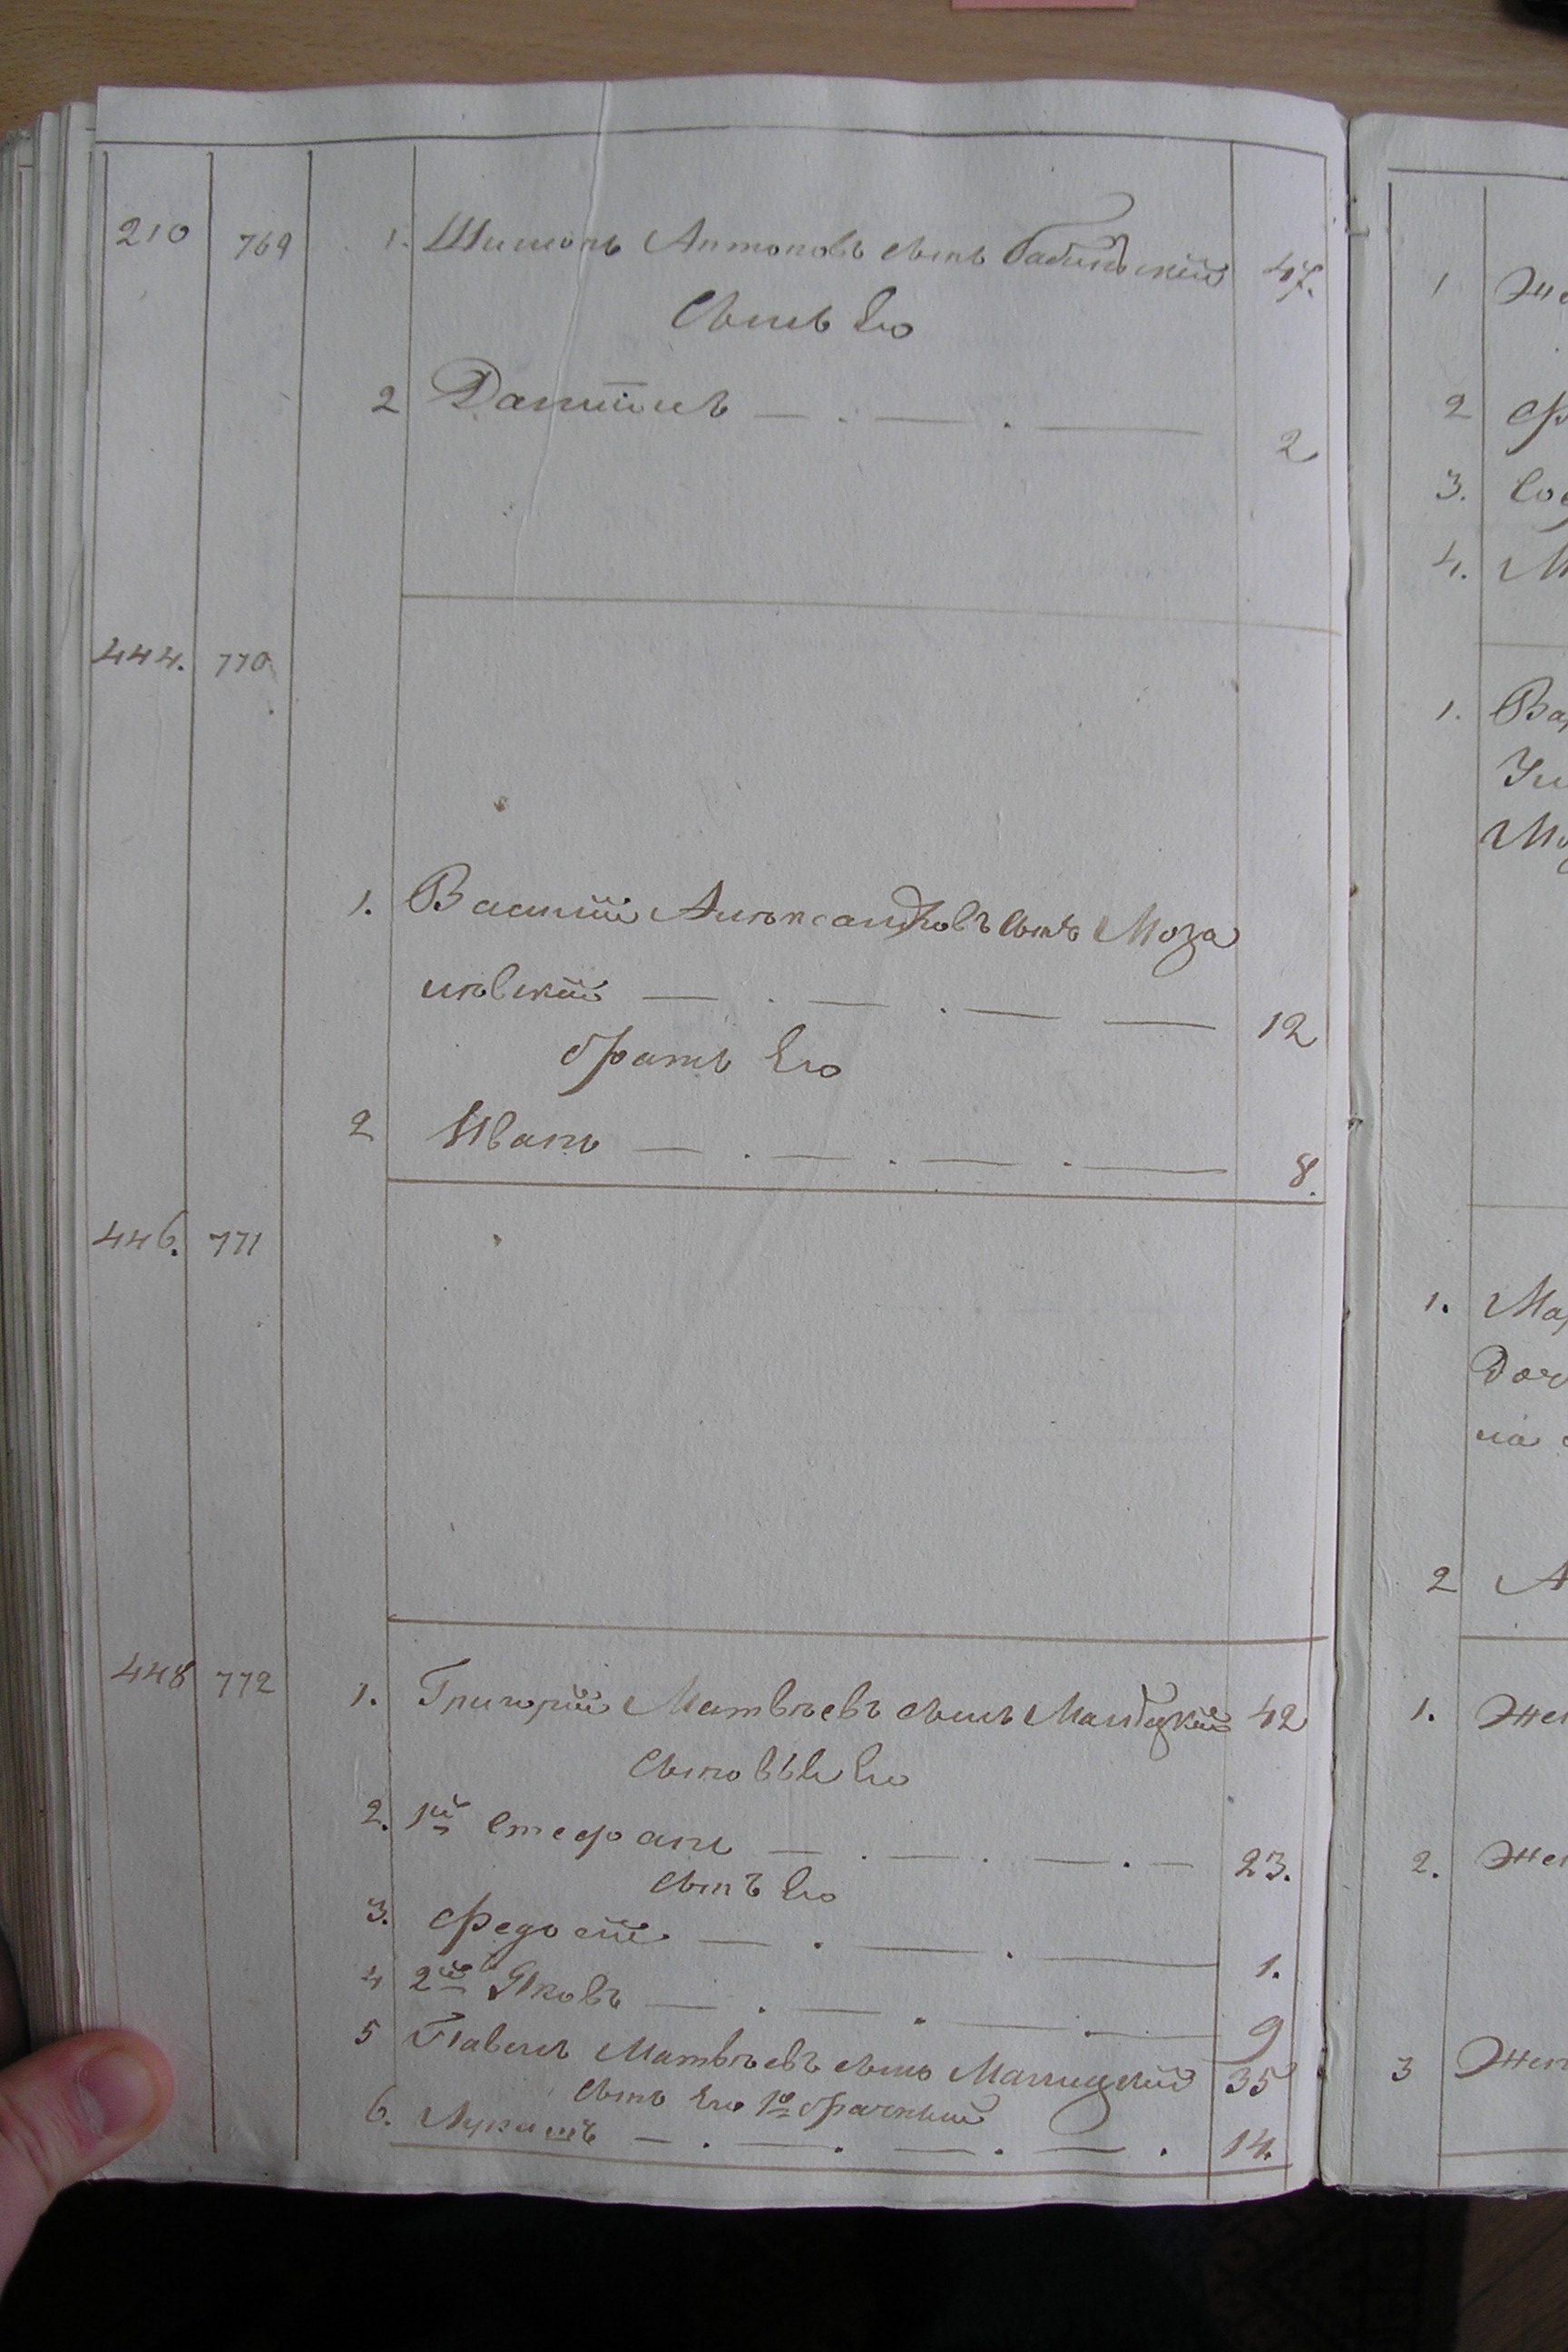 210 769 1. Шимонъ Антоновъ сынъ Бабинскій 47.
Сынъ Его
2 Даніилъ — . — . — 2
444. 770
1. Василій Александровъ Сынъ Моза
левскій — . — . — — 12
братъ Его
2 Иванъ — . — . — . — 8.
446. 771
448 772 1. Григорій Матвѣевъ сынъ 42
Сыновья Его
2. 1й Стефанъ — . — . — . — 23.
Сынъ Его
3. Федосій — . — . — 1.
4 2й Яковъ — . — . — . — 9
5 Павелъ Матвѣевъ сынъ 35
Сынъ Его 1о брачный
6. Лукашъ — . — . — . — . 14.
1 Же
2
3. Соф
4. М
1. Ва
Мо
1. Ма
Доч
на
2 А
1. Жен
2. Жен
3 Жен